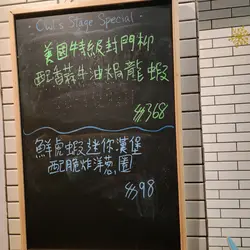 Owl's Stage Special
美國特級封門柳
配香蒜牛油焗龍蝦
$368
鮮虎蝦迷你漢堡
配脆炸洋蔥圈
$98